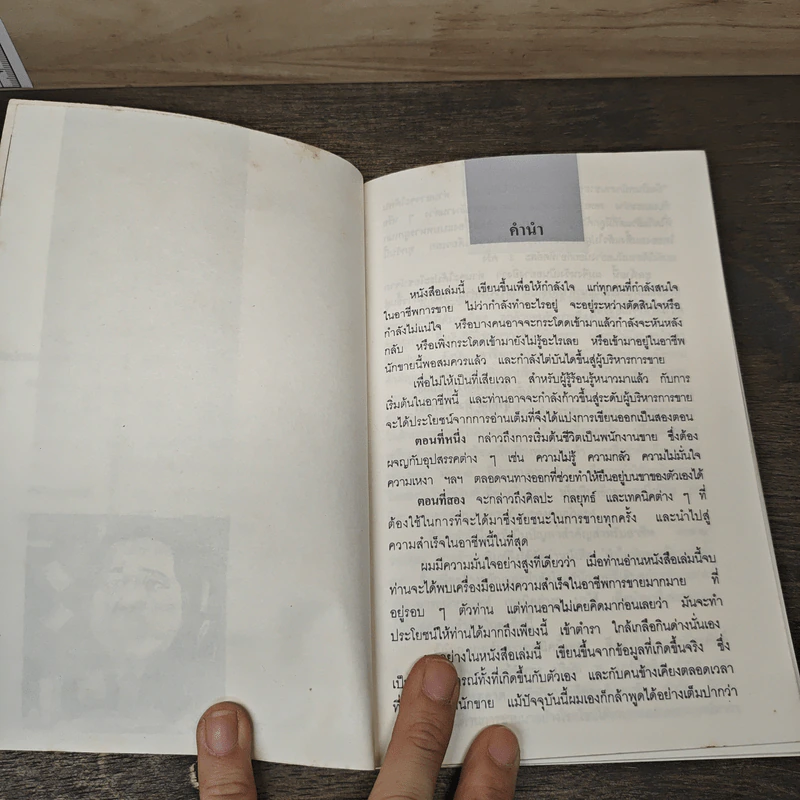 คำนำ
หนังสือเล่มนี้ เขียนขึ้นเพื่อให้กำลังใจ แก่ทุกคนที่กำลังสนใจ
ในอาชีพการขาย ไม่ว่ากำลังทำอะไรอยู่ จะอยู่ระหว่างตัดสินใจหรือ
กำลังไม่แน่ใจ หรือบางคนอาจจะกระโดดเข้ามาแล้วกำลังจะหันหลัง
กลับ หรือเพิ่งกระโดดเข้ามายังไม่รู้อะไรเลย หรือเข้ามาอยู่ในอาชีพ
นักขายนี้พอสมควรแล้ว และกำลังไต่บันไดขึ้นสู่ผู้บริหารการขาย
เพื่อไม่ให้เป็นที่เสียเวลา สำหรับผู้รู้ร้อนรู้หนาวมาแล้ว กับการ
เริ่มต้นในอาชีพนี้ และท่านอาจจะกำลังก้าวขึ้นสู่ระดับผู้บริหารการขาย
จะได้ประโยชน์จากการอ่านเต็มที่จึงได้แบ่งการเขียนออกเป็นสองตอน
ตอนที่หนึ่ง กล่าวถึงการเริ่มต้นชีวิตเป็นพนักงานขาย ซึ่งต้อง
ผจญกับอุปสรรคต่าง ๆ เช่น ความไม่รู้ ความกลัว ความไม่มั่นใจ
ความเหงา ฯลฯ ตลอดจนทางออกที่ช่วยทำให้ยืนอยู่บนขาของตัวเองได้
ตอนที่สอง จะกล่าวถึงศิลปะ กลยุทธ์ และเทคนิคต่าง ๆ ที่
ต้องใช้ในการที่จะได้มาซึ่งชัยชนะในการขายทุกครั้ง และนำไปสู่
ความสำเร็จในอาชีพนี้ในที่สุด
ผมมีความมั่นใจอย่างสูงทีเดียวว่า เมื่อท่านอ่านหนังสือเล่มนี้จบ
ท่านจะได้พบเครื่องมือแห่งความสำเร็จในอาชีพการขายมากมาย ที่
อยู่รอบ ๆ ตัวท่าน แต่ท่านอาจไม่เคยคิดมาก่อนเลยว่า มันจะทำ
ประโยชน์ให้ท่านได้มากถึงเพียงนี้ เข้าตำรา ใกล้เกลือกินด่างนั่นเอง
อย่างในหนังสือเล่มนี้ เขียนขึ้นจากข้อมูลที่เกิดขึ้นจริง ซึ่ง
ทั้งที่เกิดขึ้นกับตัวเอง และกับคนข้างเคียงตลอดเวลา
นักขาย แม้ปัจจุบันนี้ผมเองก็กล้าพูดได้อย่างเต็มปากว่า